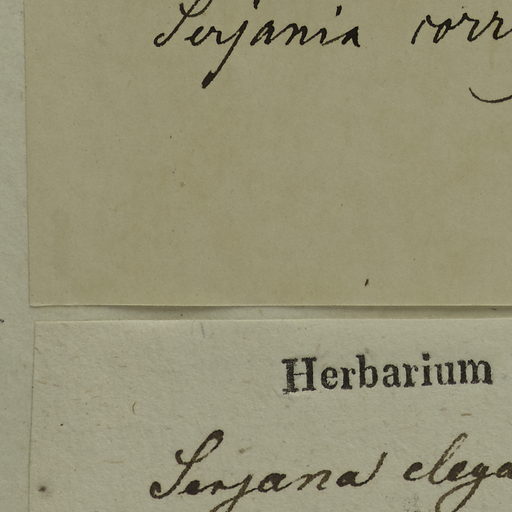 Serjania corr
Herbarium
Serjana elega